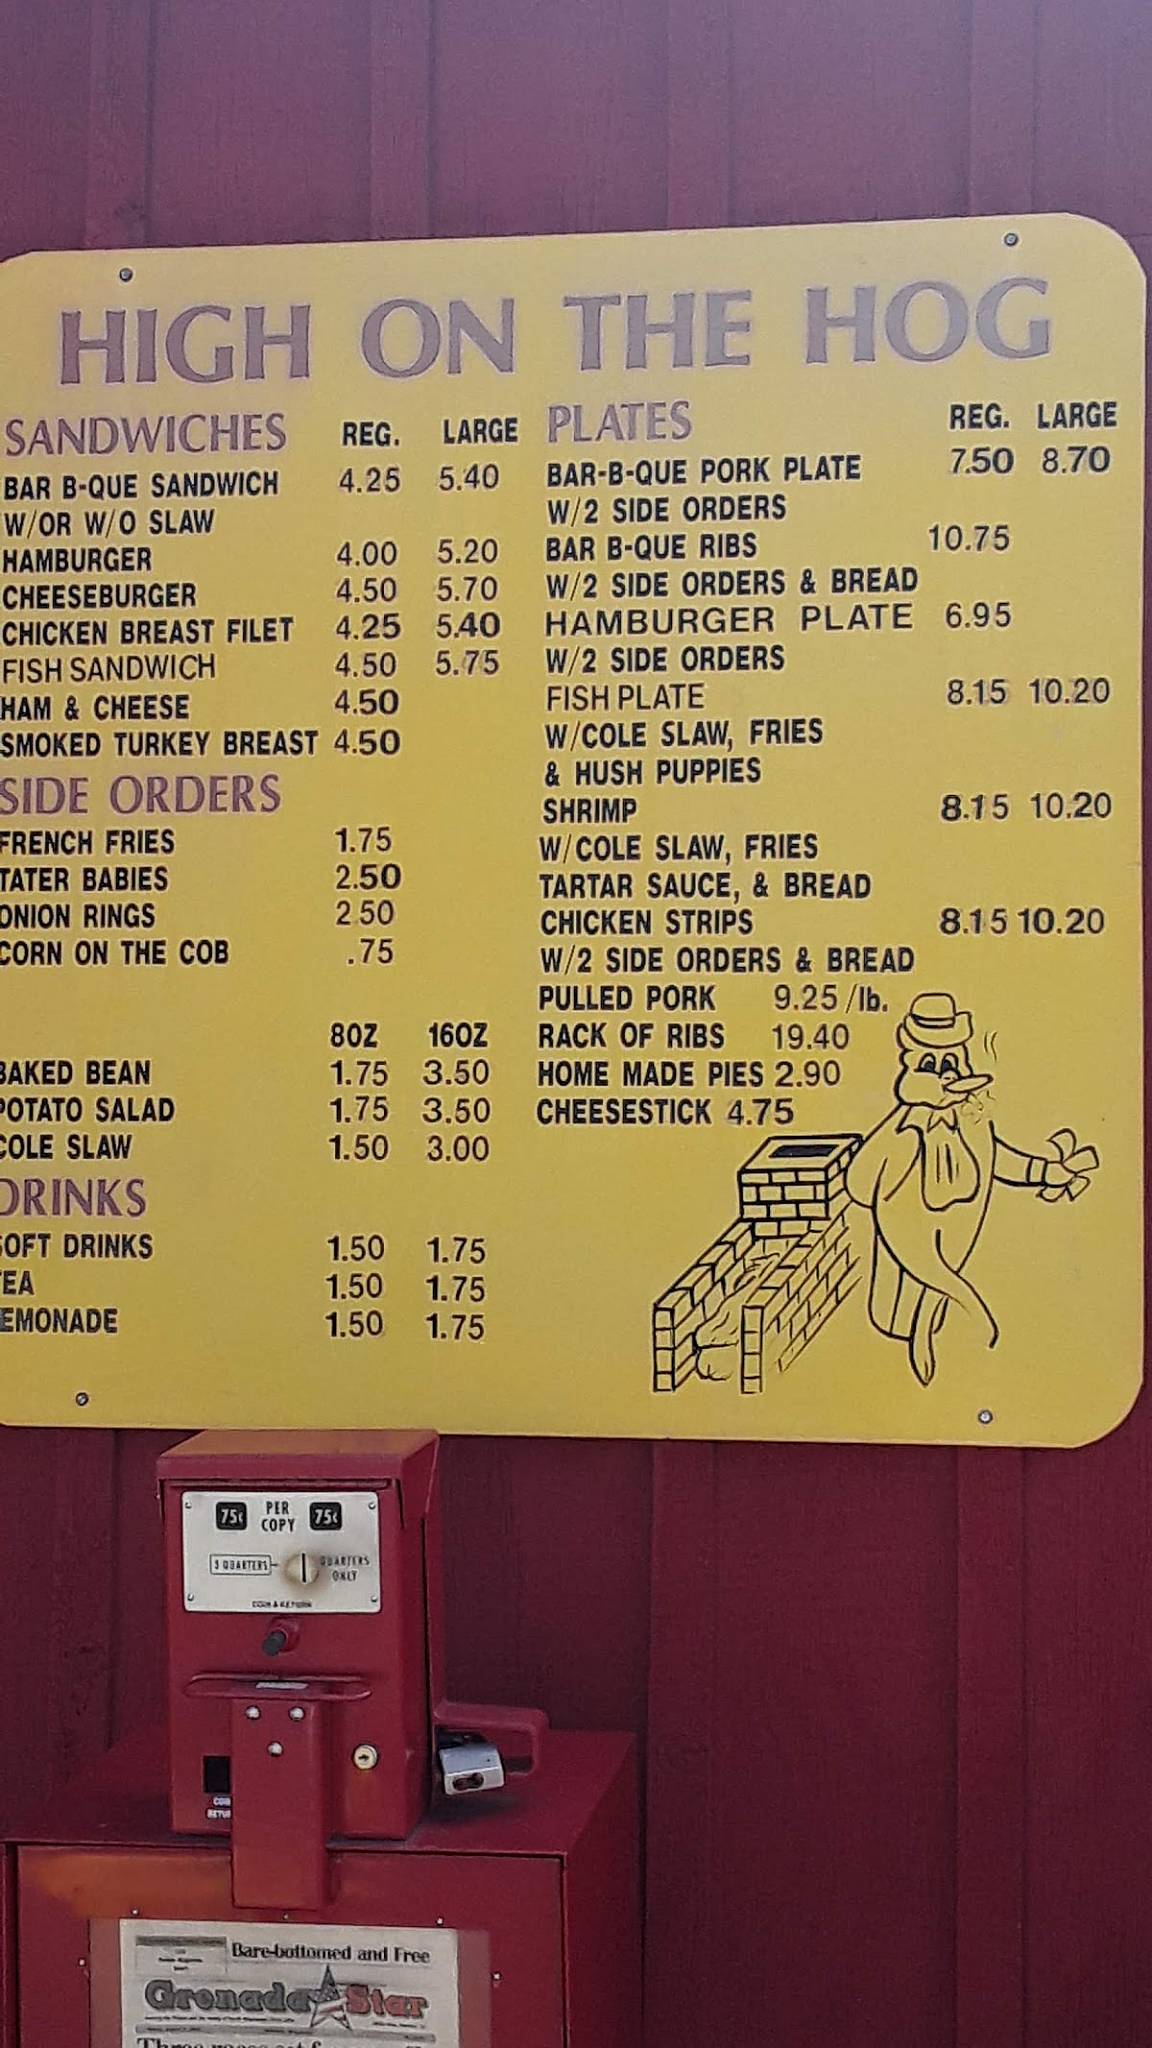 HIGH ON THE HOG
SANDWICHES REG. LARGE
BAR B-QUE SANDWICH 4.25 5.40
W/OR W/O SLAW
HAMBURGER 4.00 5.20
CHEESEBURGER 4.50 5.70
CHICKEN BREAST FILET 4.25 5.40
FISH SANDWICH 4.50 5.75
HAM & CHEESE 4.50
SMOKED TURKEY BREAST 4.50
SIDE ORDERS
FRENCH FRIES 1.75
TATER BABIES 2.50
ONION RINGS 2.50
CORN ON THE COB .75
8OZ 16OZ
BAKED BEAN 1.75 3.50
POTATO SALAD 1.75 3.50
COLE SLAW 1.50 3.00
DRINKS
SOFT DRINKS 1.50 1.75
TEA 1.50 1.75
LEMONADE 1.50 1.75
PLATES REG. LARGE
BAR-B-QUE PORK PLATE 7.50 8.70
W/2 SIDE ORDERS
BAR B-QUE RIBS 10.75
W/2 SIDE ORDERS & BREAD
HAMBURGER PLATE 6.95
W/2 SIDE ORDERS
FISH PLATE 8.15 10.20
W/COLE SLAW, FRIES
& HUSH PUPPIES
SHRIMP 8.15 10.20
W/COLE SLAW, FRIES
TARTAR SAUCE, & BREAD
CHICKEN STRIPS 8.15 10.20
W/2 SIDE ORDERS & BREAD
PULLED PORK 9.25 /lb.
RACK OF RIBS 19.40
HOME MADE PIES 2.90
CHEESESTICK 4.75
75¢ PER COPY 75¢
3 QUARTERS QUARTERS ONLY
COIN RETURN
Bare-bottomed and Free
Grenada Star